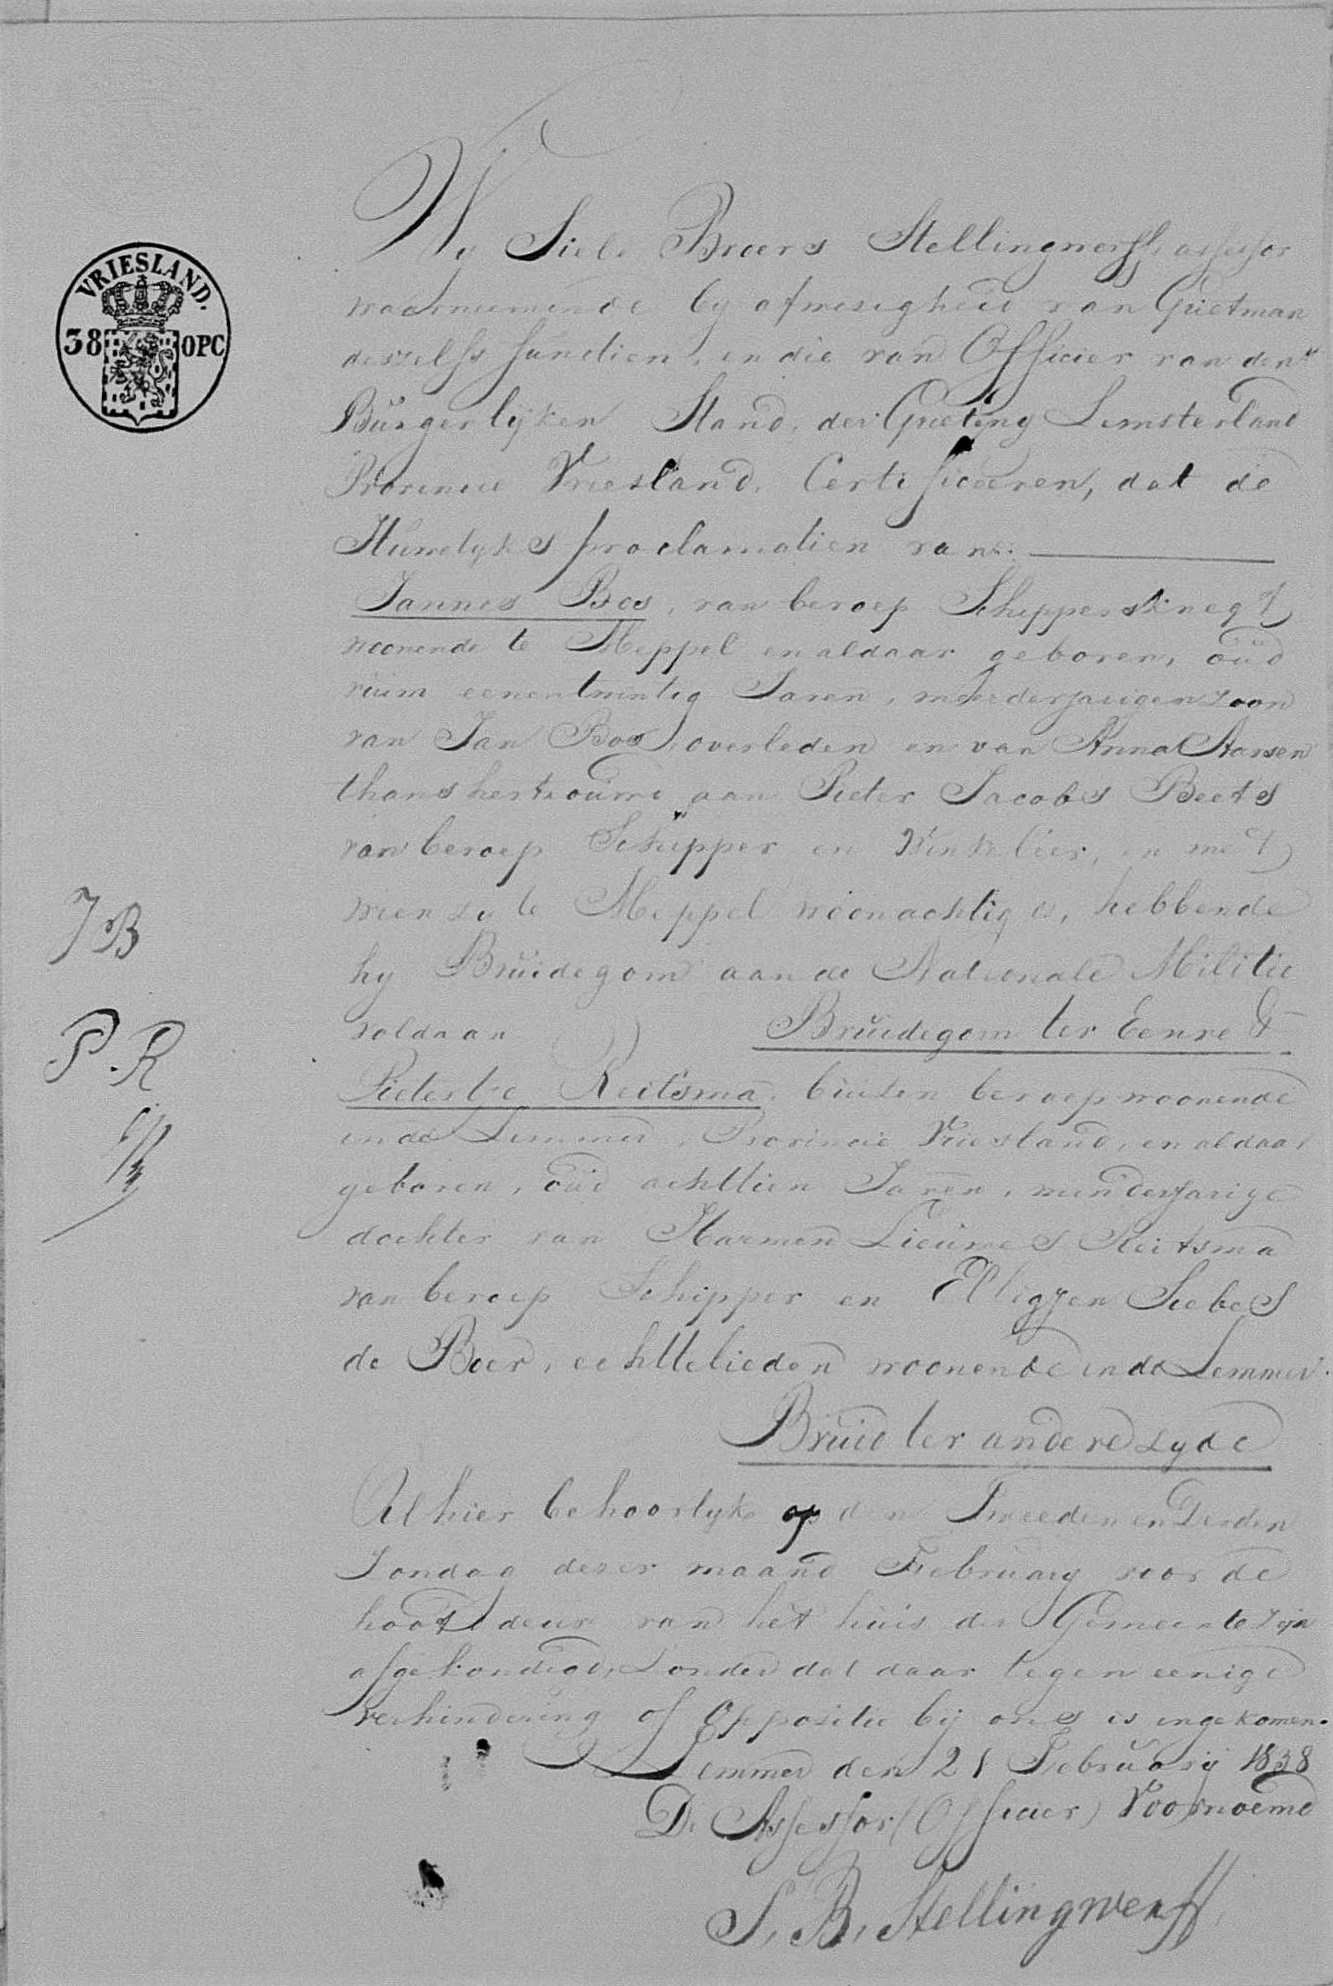 VRIESLAND.
38 OPC
Wy Siebe Broers Stellingwerff, assessor
waarnemende by afwesigheid van Grietman
deszelfs functien, en die van Officier van den
Burgerlyken Stand, der Grieteny Lemsterland
Provincie Vriesland, Certificeeren, dat de
Huwelyks proclamatien van:
Jannes Bos, van beroep Schippersknegt
woonende te Meppel en aldaar geboren, oud
ruim eenentwintig Jaren, meerderjarigen zoon
van Jan Bos, overleden en van Anna
thans hertrouwd aan Pieter Jacobs Beets
van beroep Schipper en Winkelier, en met
wien zy te Meppel woonachtig is, hebbende
hy Bruidegom aan de Nationale Militie
voldaan Bruidegom ter Eenre &
JB
P.R
Pietertje Reitsma, buiten beroep woonende
in de Lemmer, Provincie Vriesland, en aldaar
geboren, oud achttien Jaren, minderjarige
dochter van Harmen Lieuwes Reitsma
van beroep Schipper en Siebes
de Boer, echtelieden woonende in de Lemmer.
Bruid ter andere zyde
Alhier behoorlyk op den Tweeden en Derden
Zondag dezer maand February voor de
hoofddeur van het huis der Gemeente zyn
afgekondigd, zonder dat daar tegen eenige
verhindering of Oppositie bij ons is ingekomen.
Lemmer den 21 February 1838
De Assessor (Officier) Voornoemd
S. B. Stellingwerff